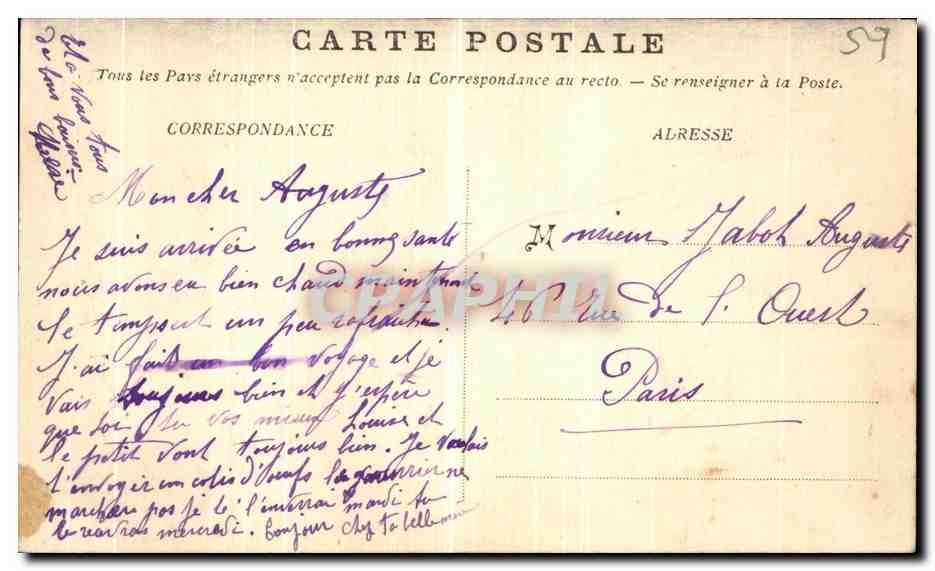 CARTE POSTALE
59
Tous les Pays étrangers n'acceptent pas la Correspondance au recto. — Se renseigner à la Poste.
CORRESPONDANCE
ADRESSE
Et à vous tous
de bons baisers
Mon cher Auguste
Je suis arrivée en bonne sante
nous avons eu bien chaud maintenant
le temps est un peu rafraichi.
J'ai fait un bon voyage et je
vais toujours bien et j'espère
que toi tu vas mieux Louise et
le petit vont toujours bien. Je voulais
t'envoyer un colis d'oeufs le courrier ne
marchera pas je te l'enverrai mardi tu
le recevras mercredi. bonjour chez ta belle mère
Monsieur Jabot Auguste
46 Rue de l. Ouest
Paris
CPAPHIL